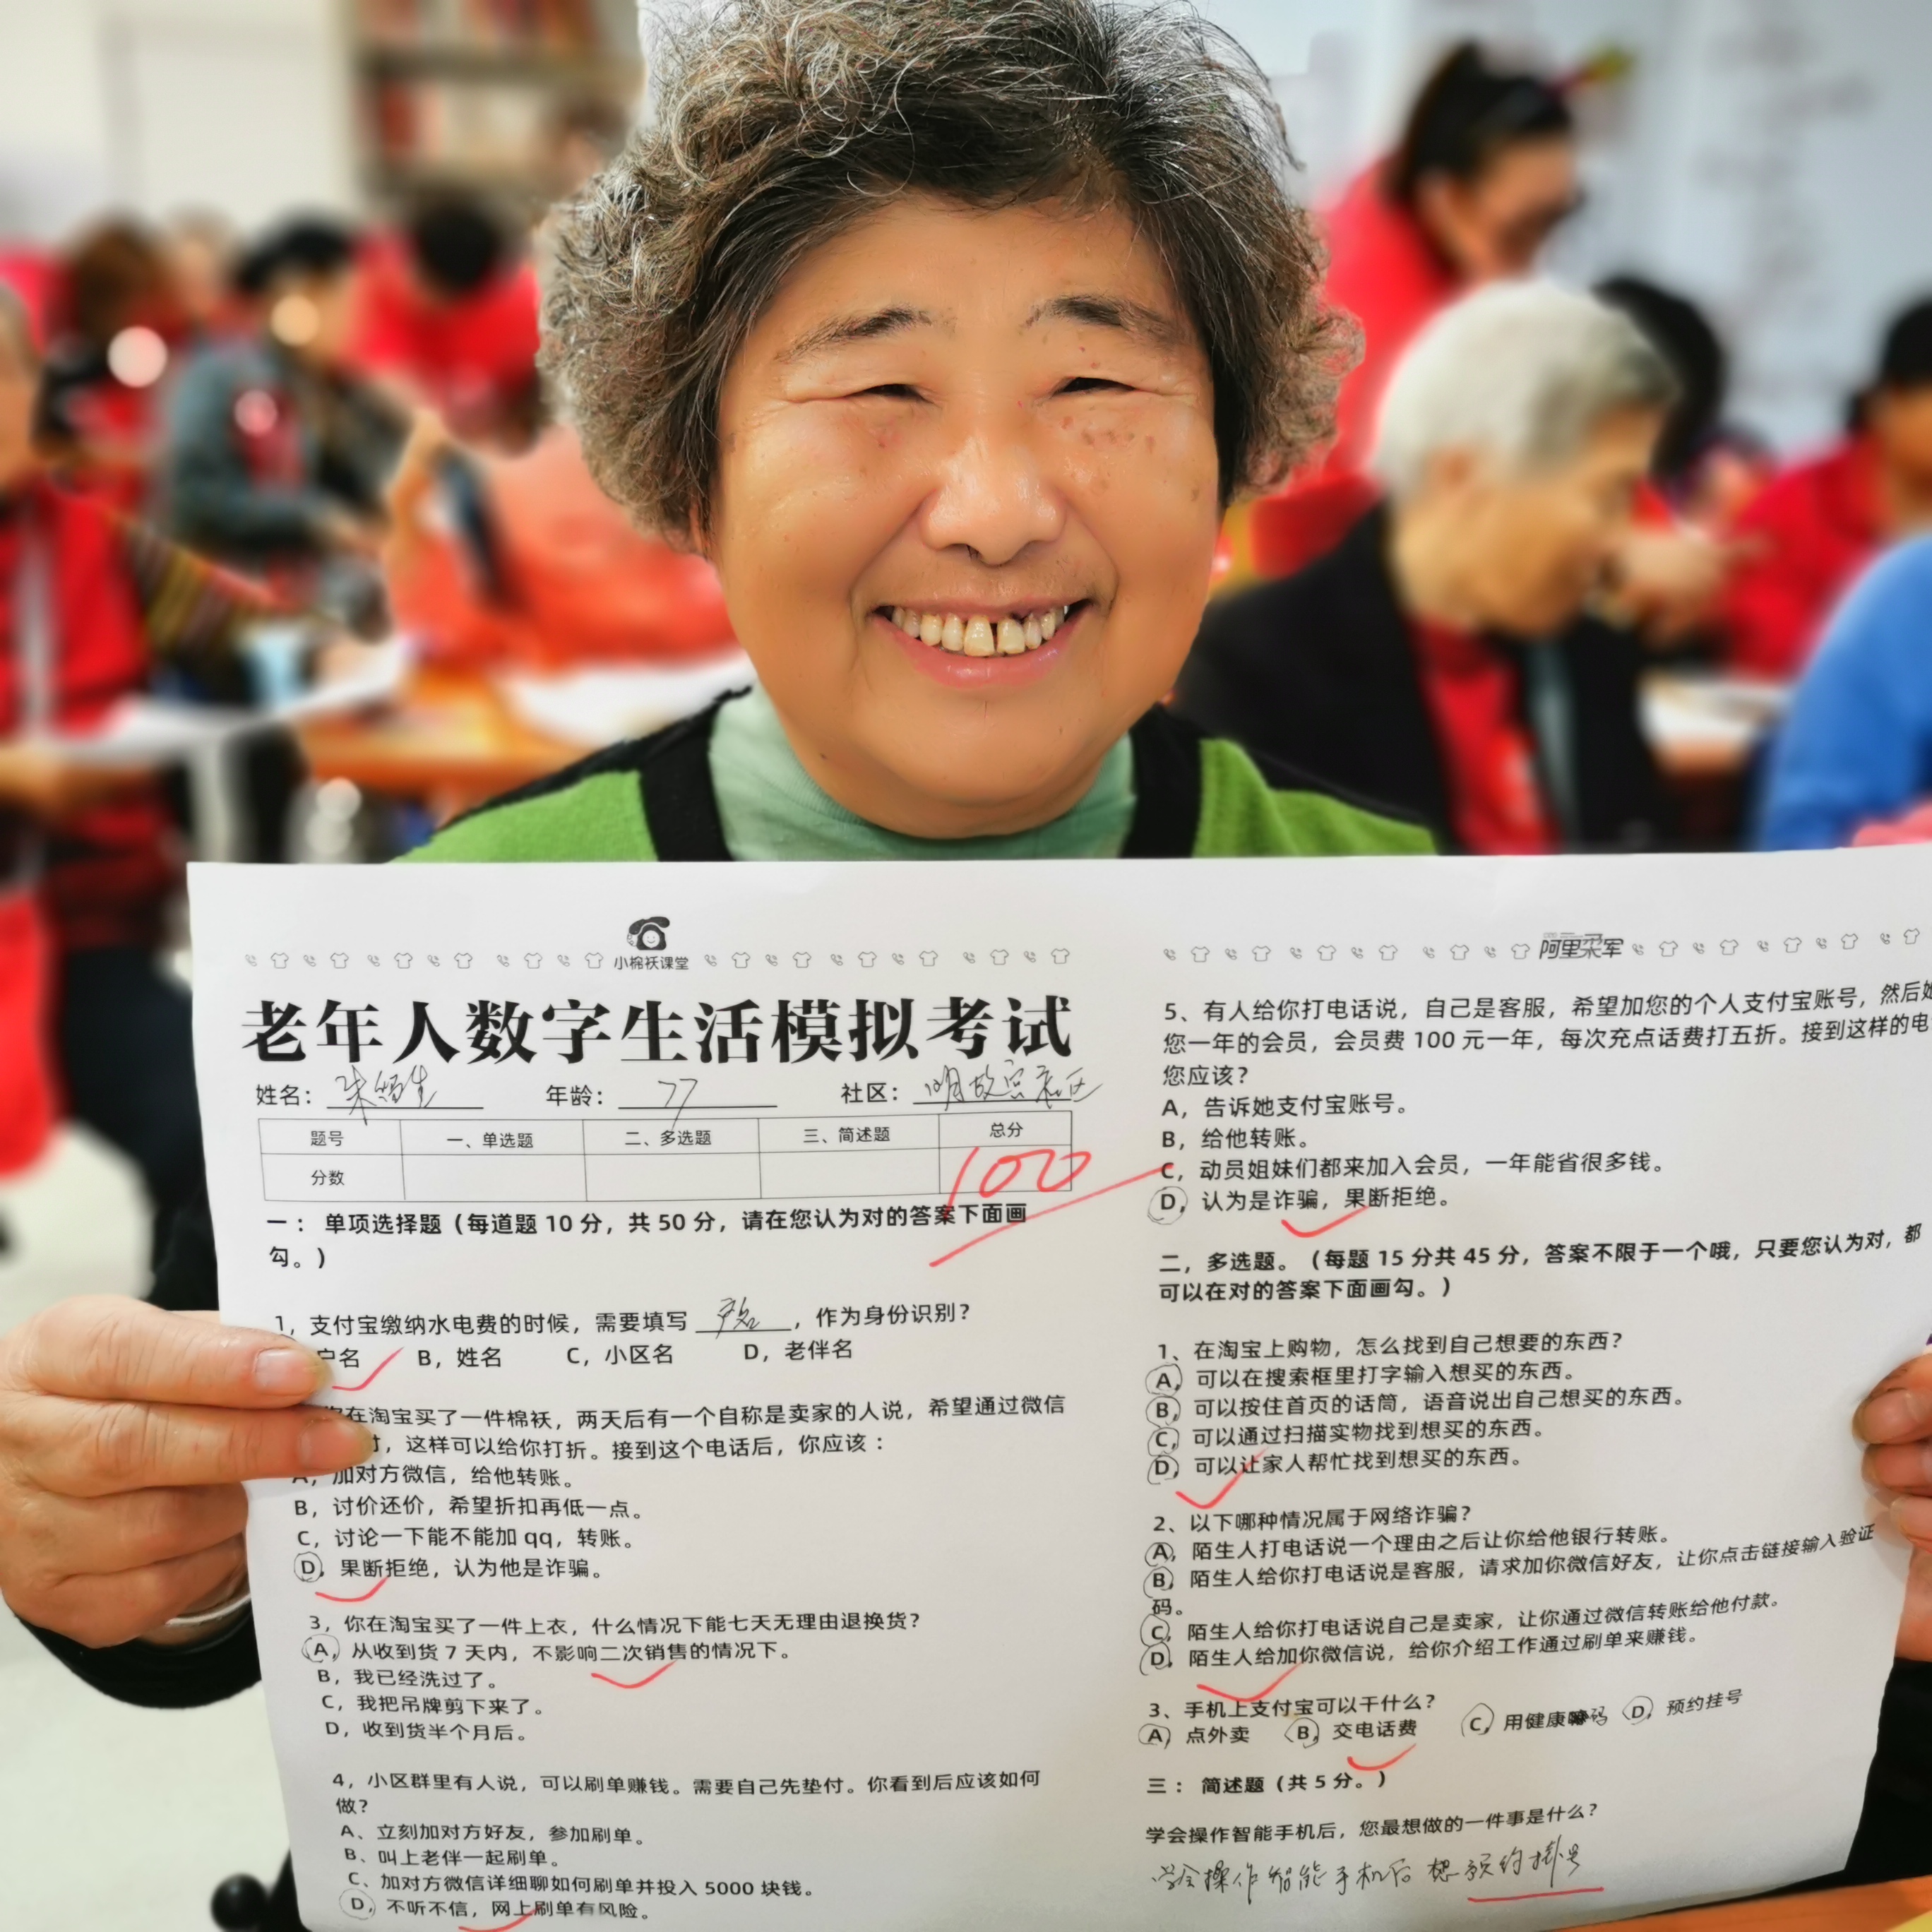 小棉袄课堂
老年人数字生活模拟考试
姓名： 年龄：77 社区：明故宫社区
题号 一、单选题 二、多选题 三、简述题 总分
分数 100
一：单项选择题（每道题 10 分，共 50 分，请在您认为对的答案下面画
勾。）
1，支付宝缴纳水电费的时候，需要填写 户名 ，作为身份识别？
户名 B，姓名 C，小区名 D，老伴名
在淘宝买了一件棉袄，两天后有一个自称是卖家的人说，希望通过微信
，这样可以给你打折。接到这个电话后，你应该：
A，加对方微信，给他转账。
B，讨价还价，希望折扣再低一点。
C，讨论一下能不能加 qq，转账。
D，果断拒绝，认为他是诈骗。
3，你在淘宝买了一件上衣，什么情况下能七天无理由退换货？
A，从收到货 7 天内，不影响二次销售的情况下。
B，我已经洗过了。
C，我把吊牌剪下来了。
D，收到货半个月后。
4，小区群里有人说，可以刷单赚钱。需要自己先垫付。你看到后应该如何
做？
A、立刻加对方好友，参加刷单。
B、叫上老伴一起刷单。
C、加对方微信详细聊如何刷单并投入 5000 块钱。
D，不听不信，网上刷单有风险。
阿里柔军
5、有人给你打电话说，自己是客服，希望加您的个人支付宝账号，然后
您一年的会员，会员费 100 元一年，每次充点话费打五折。接到这样的电
您应该？
A，告诉她支付宝账号。
B，给他转账。
C，动员姐妹们都来加入会员，一年能省很多钱。
D，认为是诈骗，果断拒绝。
二，多选题。（每题 15 分共 45 分，答案不限于一个哦，只要您认为对，都
可以在对的答案下面画勾。）
1、在淘宝上购物，怎么找到自己想要的东西？
A，可以在搜索框里打字输入想买的东西。
B，可以按住首页的话筒，语音说出自己想买的东西。
C，可以通过扫描实物找到想买的东西。
D，可以让家人帮忙找到想买的东西。
2、以下哪种情况属于网络诈骗？
A，陌生人打电话说一个理由之后让你给他银行转账。
B，陌生人给你打电话说是客服，请求加你微信好友，让你点击链接输入验证
码。
C，陌生人给你打电话说自己是卖家，让你通过微信转账给他付款。
D，陌生人给加你微信说，给你介绍工作通过刷单来赚钱。
3、手机上支付宝可以干什么？
A，点外卖 B，交电话费 C，用健康码 D，预约挂号
三：简述题（共 5 分。）
学会操作智能手机后，您最想做的一件事是什么？
学会操作智能手机后 想预约掛号